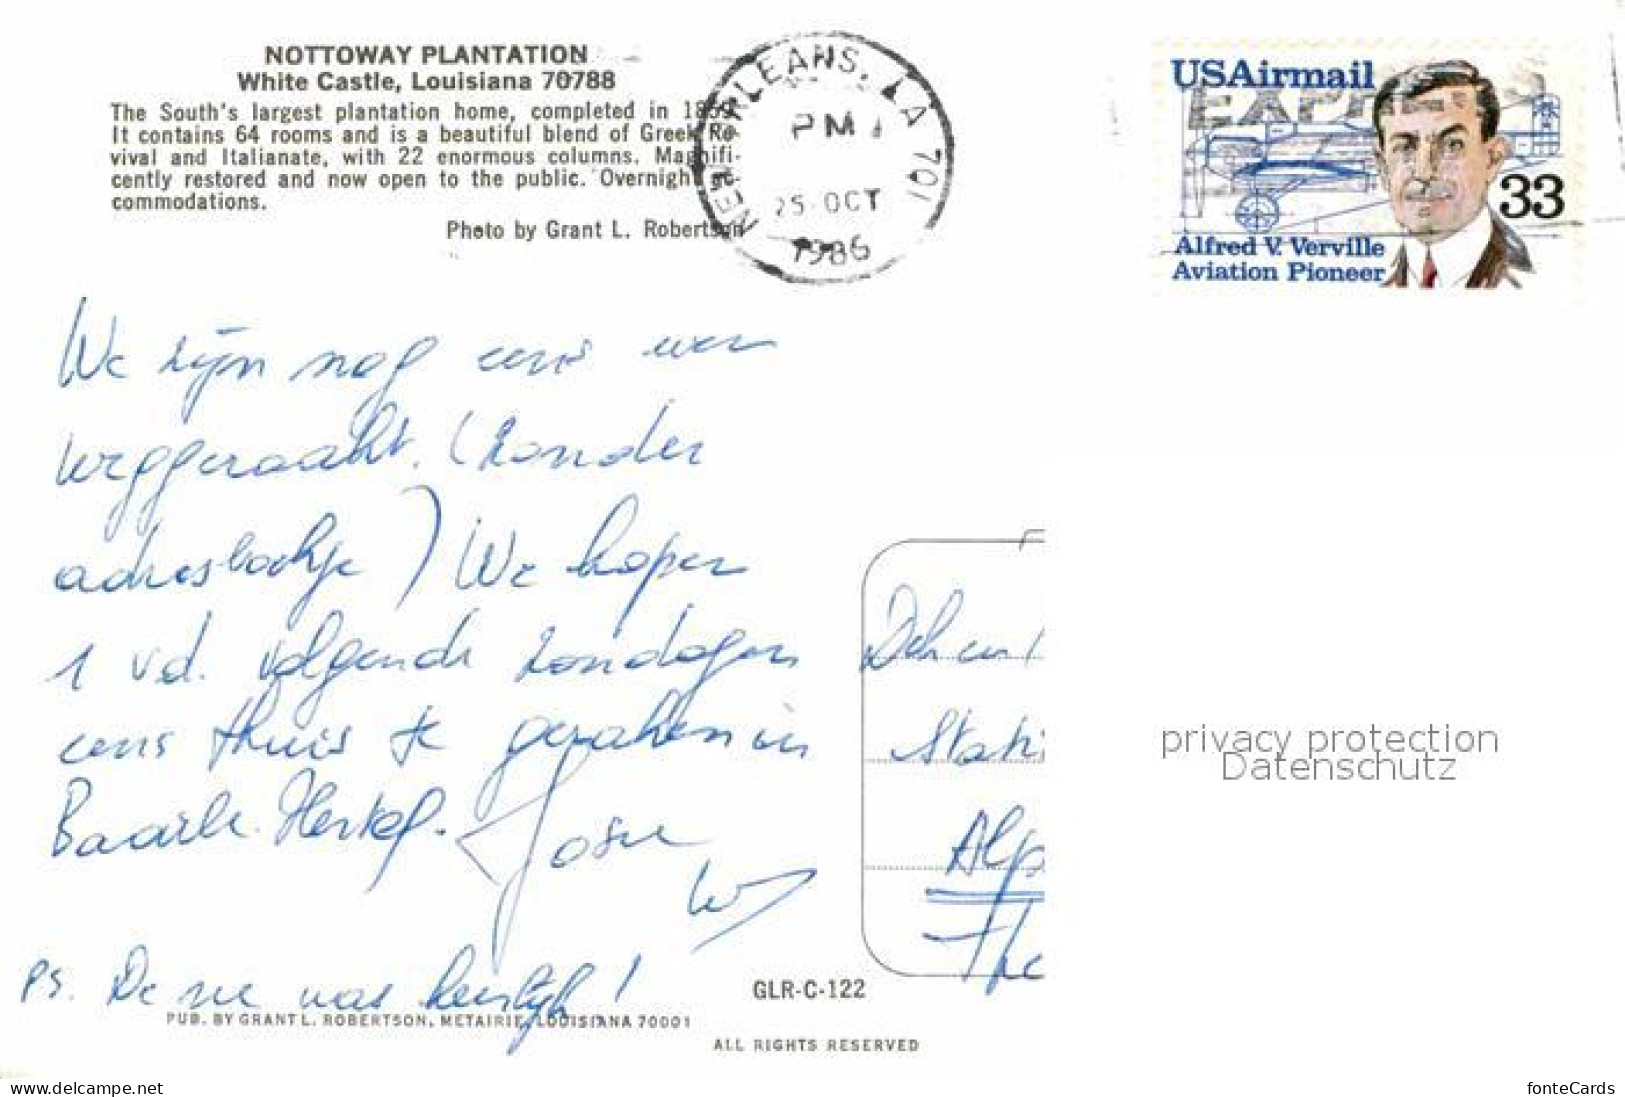 NOTTOWAY PLANTATION
White Castle, Louisiana 70788
The South's largest plantation home, completed in 1859.
It contains 64 rooms and is a beautiful blend of Greek Re-
vival and Italianate, with 22 enormous columns. Magnifi-
cently restored and now open to the public. Overnight ac-
commodations.
Photo by Grant L. Robertson
NEW ORLEANS, LA 701
PM
25 OCT
1986
USAirmail
33
Alfred V. Verville
Aviation Pioneer
We zijn nog eens weer
weggeraakt. (zonder
adresboekje) We hopen
1 v.d. volgende zondagen
eens thuis te geraken in
Baarle-Hertog.
PS. De zee was heerlijk!
Stati
Alp
The
privacy protection
Datenschutz
GLR-C-122
PUB. BY GRANT L. ROBERTSON, METAIRIE, LOUISIANA 70001
ALL RIGHTS RESERVED
www.delcampe.net
fonteCards